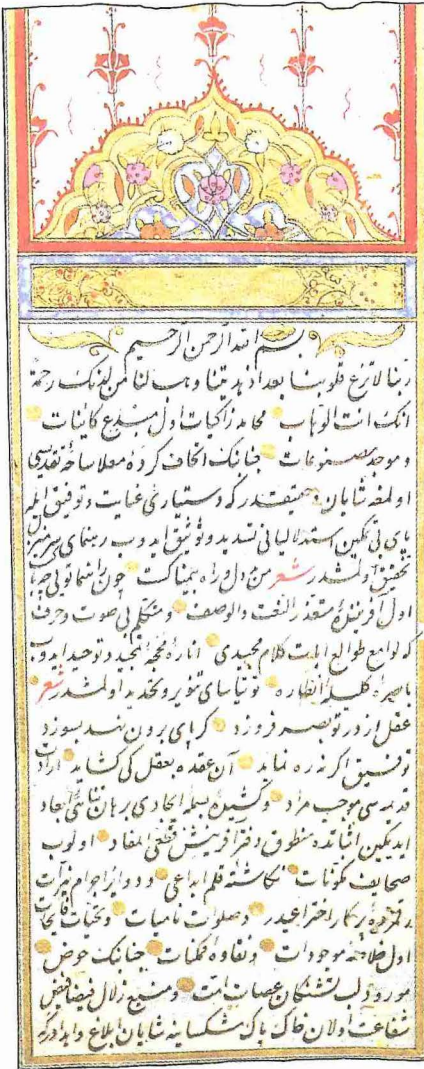 بسم الله الرحمن الرحيم
ربنا لا تزغ قلوبنا بعد اذ هديتنا وهب لنا من لدنك رحمة
انك انت الوهاب محامد زاكيات اول مبدع كائنات
وموجد مصنوعات جنابنك اتحاف كرده معلا ساحهٔ تقديسى
اولمغه شايان وحقيقتدر كه دستيارئ عنايت وتوفيق ايله
پاى بى تمكين استدلاليانى تسديد وتوثيق ايدوب رهنماى سر منزل
تحقيق اولمشدر شعر من و دل راه بيمناكست چون
اول آفرينندهٔ متعذر النعت والوصف ومتكلم بى صوت وحرف
كه لوامع طوالع آيت كلام مجيدى اناره محجهٔ تمجيد وتوحيد ايدوب
باصرهٔ انظاره توتياساى تنوير وتحديد اولمشدر شعر
عقل از در تو بصر فروزد كر پاى برون نهد بسوزد
توفيق تو كر نه ره نمايد آن عقده بعقل كى كشايد اراده
قديمه سى موجب مراد
ايديكين اثباتده منطوق دفتر آفرينش اولوب
صحايف مكونات نكاشتهٔ قلم ابداعى ودواير اجرام نيرات
رقمزدهٔ پركار اختراعيدر وصلوات ناميات وتحيات فايحات
اول خلاصهٔ موجودات ونقاوهٔ ممكنات جنابنك حوض
مورود لب تشنكان عصات امت ومنبع زلال فيضا فيض
شفاعت اولان خاك پاك مشكساينه شايان ابلاغ واهدادركه